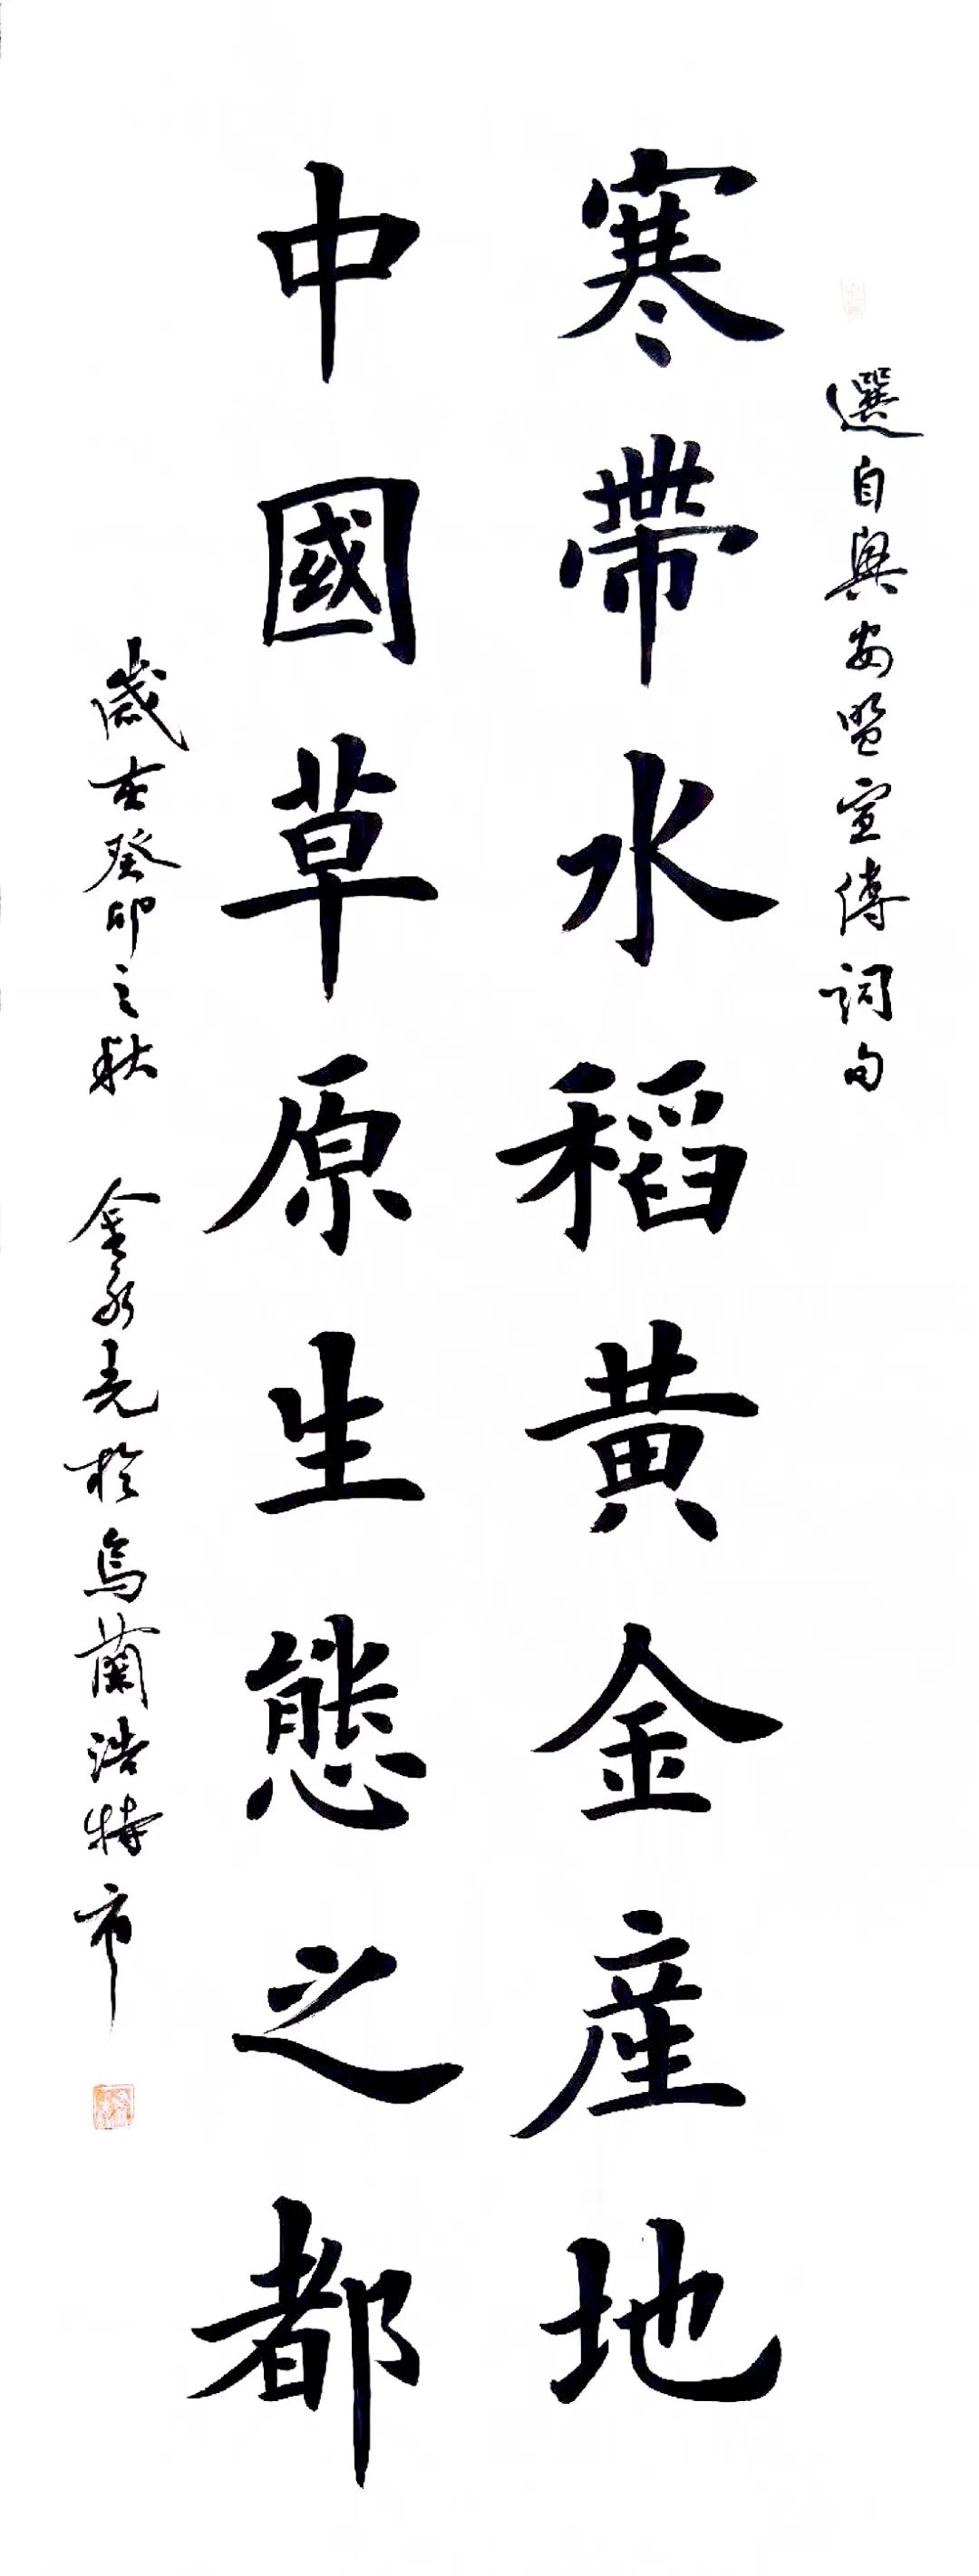 選自興安盟宣傳詞句
寒帶水稻黃金産地
中國草原生態之都
歲在癸卯之秋 金永亮於烏蘭浩特市